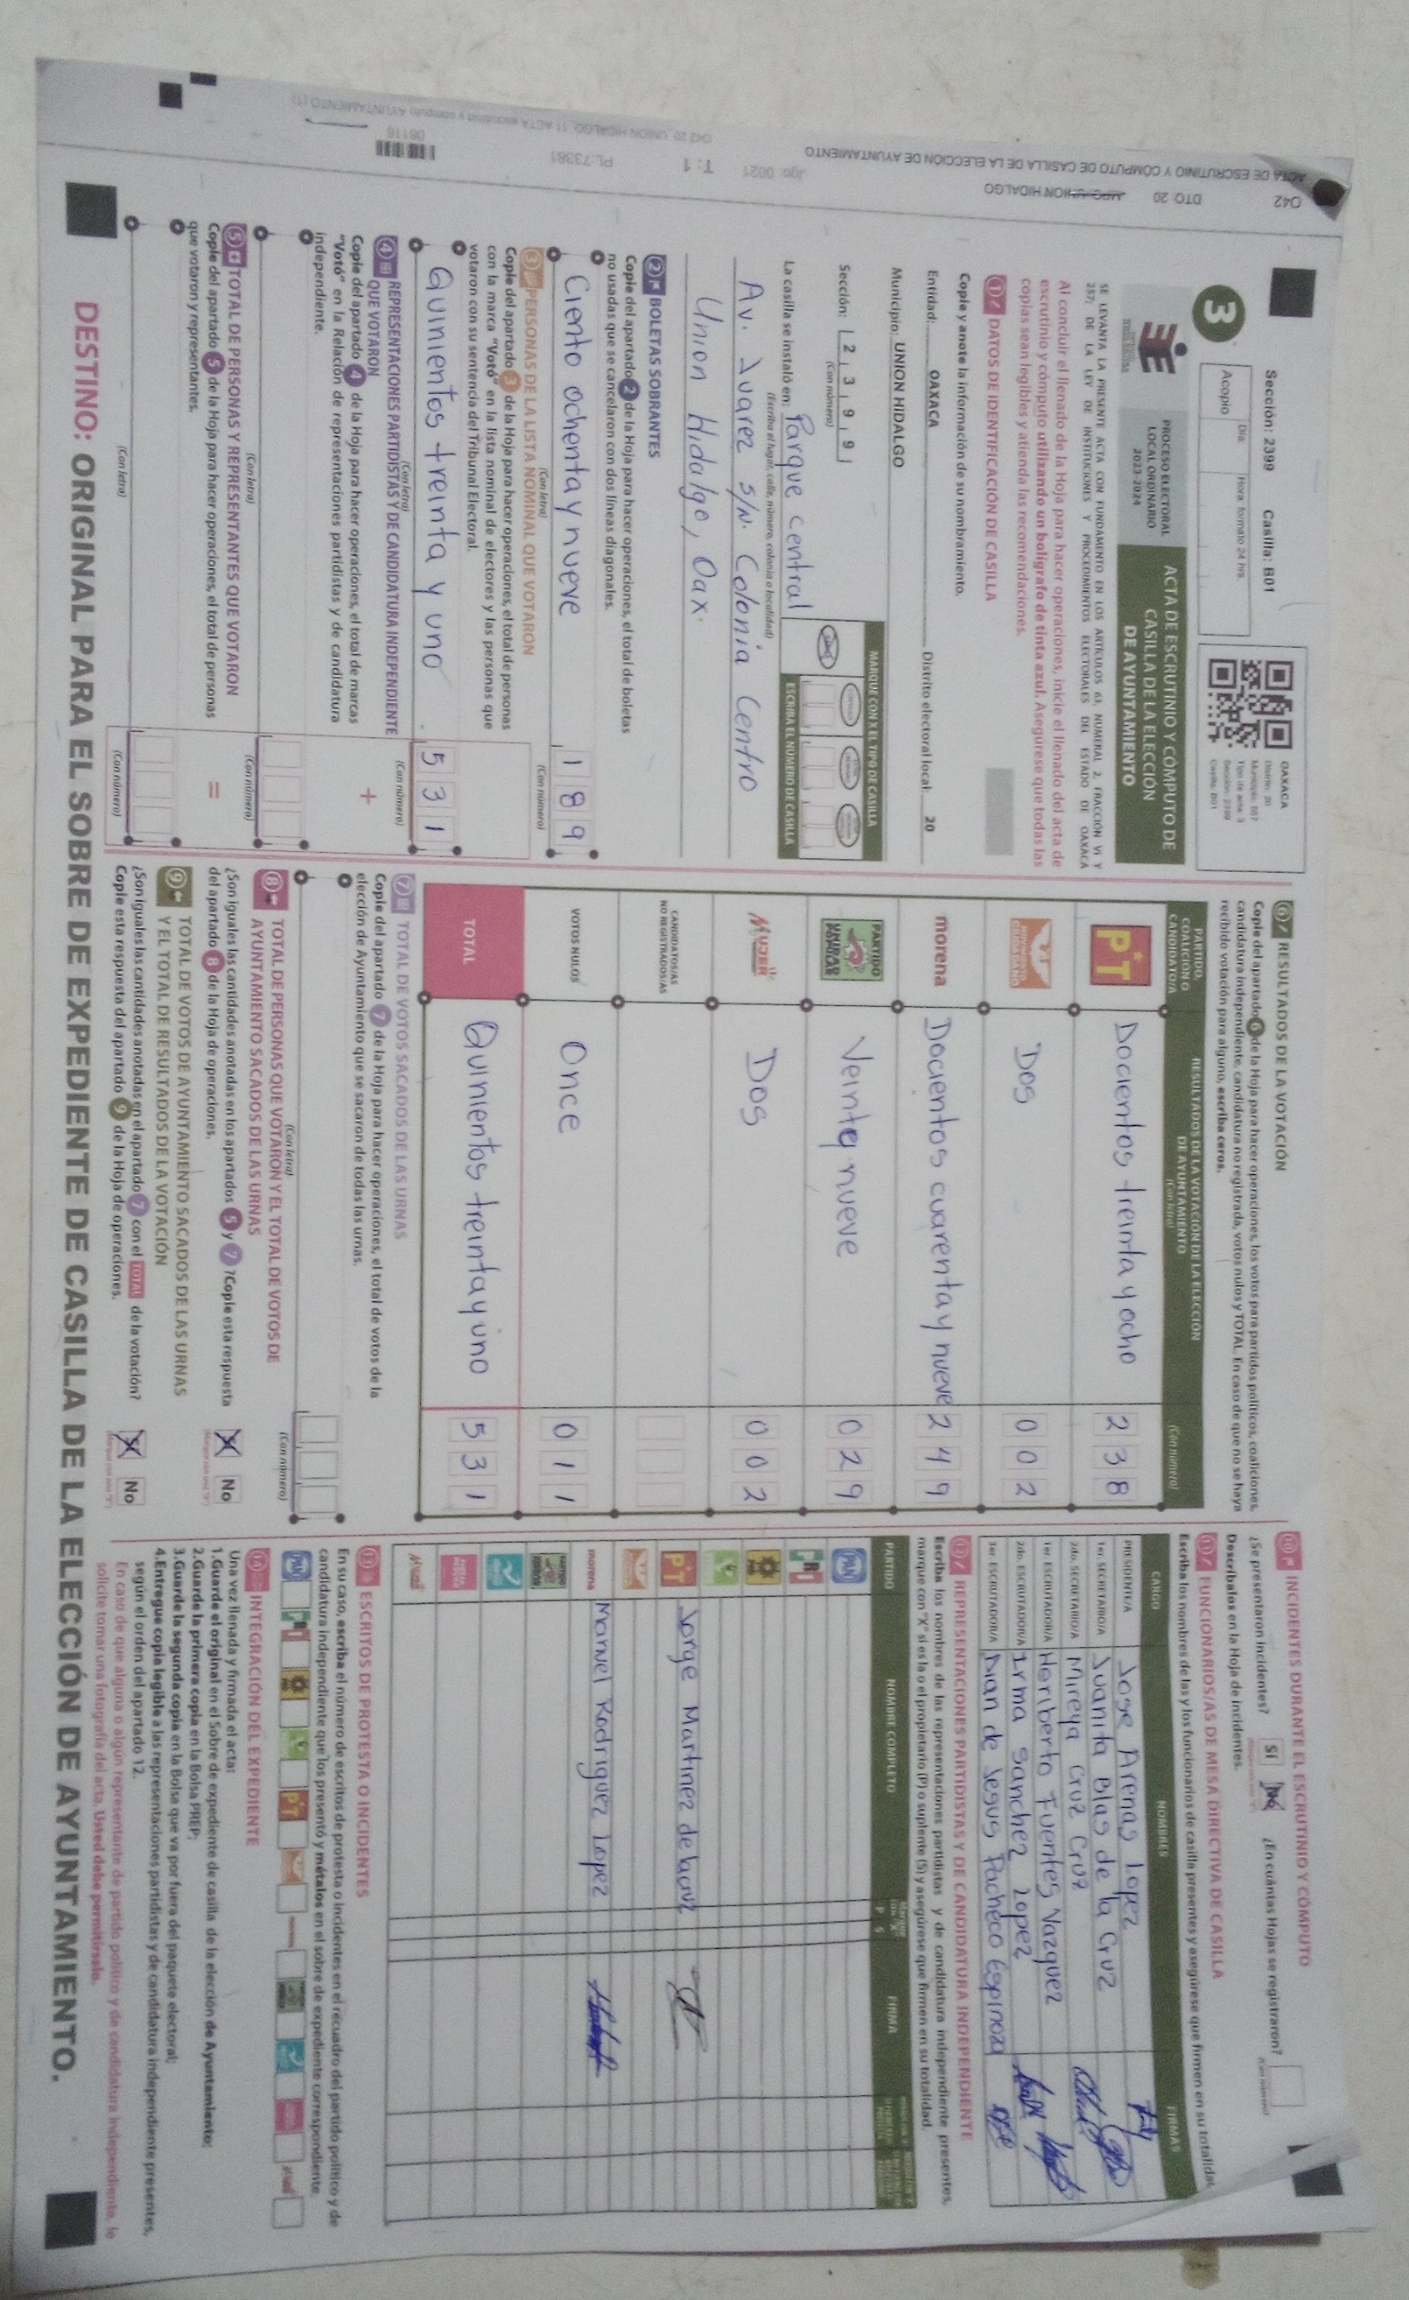 Sección: 2399 Casilla: B01
3
Acopio
Día:
Hora: formato 24 hrs.
OAXACA
Distrito: 20
Municipio: 557
Tipo de acta: 3
Sección: 2399
Casilla: B01
PROCESO ELECTORAL
LOCAL ORDINARIO
2023-2024
ACTA DE ESCRUTINIO Y CÓMPUTO DE
CASILLA DE LA ELECCIÓN
DE AYUNTAMIENTO
SE LEVANTA LA PRESENTE ACTA CON FUNDAMENTO EN LOS ARTÍCULOS 63, NUMERAL 2, FRACCIÓN VI Y
237; DE LA LEY DE INSTITUCIONES Y PROCEDIMIENTOS ELECTORALES DEL ESTADO DE OAXACA
Al concluir el llenado de la Hoja para hacer operaciones, inicie el llenado del acta de
escrutinio y cómputo utilizando un bolígrafo de tinta azul. Asegúrese que todas las
copias sean legibles y atienda las recomendaciones.
1 DATOS DE IDENTIFICACIÓN DE CASILLA
Copie y anote la información de su nombramiento.
Entidad: OAXACA Distrito electoral local: 20
Municipio: UNION HIDALGO
Sección: 2 3 9 9
(Con número)
MARQUE CON X EL TIPO DE CASILLA
ESCRIBA EL NÚMERO DE CASILLA
La casilla se instaló en: Parque central
(Escriba el lugar, calle, número, colonia o localidad)
Av. Juarez S/N. Colonia Centro
Union Hidalgo, Oax.
2 BOLETAS SOBRANTES
Copie del apartado 2 de la Hoja para hacer operaciones, el total de boletas
no usadas que se cancelaron con dos líneas diagonales.
Ciento ochenta y nueve 1 8 9
(Con letra) (Con número)
3 PERSONAS DE LA LISTA NOMINAL QUE VOTARON
Copie del apartado 3 de la Hoja para hacer operaciones, el total de personas
con la marca "Votó" en la lista nominal de electores y las personas que
votaron con su sentencia del Tribunal Electoral.
Quinientos treinta y uno 5 3 1
(Con letra) (Con número)
4 REPRESENTACIONES PARTIDISTAS Y DE CANDIDATURA INDEPENDIENTE
QUE VOTARON
Copie del apartado 4 de la Hoja para hacer operaciones, el total de marcas
"Votó" en la Relación de representaciones partidistas y de candidatura
independiente.
+
(Con letra) (Con número)
5 TOTAL DE PERSONAS Y REPRESENTANTES QUE VOTARON
Copie del apartado 5 de la Hoja para hacer operaciones, el total de personas
que votaron y representantes.
=
(Con letra) (Con número)
6 RESULTADOS DE LA VOTACIÓN
Copie del apartado 6 de la Hoja para hacer operaciones, los votos para partidos políticos, coaliciones,
candidatura independiente, candidatura no registrada, votos nulos y TOTAL. En caso de que no se haya
recibido votación para alguno, escriba ceros.
PARTIDO,
COALICIÓN O
CANDIDATO/A
RESULTADOS DE LA VOTACIÓN DE LA ELECCIÓN
DE AYUNTAMIENTO
(Con letra) (Con número)
PT Docientos treinta y ocho 2 3 8
Dos 0 0 2
morena Docientos cuarenta y nueve 2 4 9
PARTIDO UNIDAD POPULAR Veinte nueve 0 2 9
MUJER Dos 0 0 2
CANDIDATOS/AS
NO REGISTRADOS/AS
VOTOS NULOS Once 0 1 1
TOTAL Quinientos treinta y uno 5 3 1
7 TOTAL DE VOTOS SACADOS DE LAS URNAS
Copie del apartado 7 de la Hoja para hacer operaciones, el total de votos de la
elección de Ayuntamiento que se sacaron de todas las urnas.
(Con letra) (Con número)
8 TOTAL DE PERSONAS QUE VOTARON Y EL TOTAL DE VOTOS DE
AYUNTAMIENTO SACADOS DE LAS URNAS
¿Son iguales las cantidades anotadas en los apartados 5 y 7 ?Copie esta respuesta
del apartado 8 de la Hoja de operaciones.
No
9 TOTAL DE VOTOS DE AYUNTAMIENTO SACADOS DE LAS URNAS
Y EL TOTAL DE RESULTADOS DE LA VOTACIÓN
¿Son iguales las cantidades anotadas en el apartado 7 con el TOTAL de la votación?
Copie esta respuesta del apartado 9 de la Hoja de operaciones.
No
10 INCIDENTES DURANTE EL ESCRUTINIO Y CÓMPUTO
¿Se presentaron incidentes? Sí No ¿En cuántas Hojas se registraron?
Descríbalos en la Hoja de incidentes.
11 FUNCIONARIOS/AS DE MESA DIRECTIVA DE CASILLA
Escriba los nombres de las y los funcionarios de casilla presentes y asegúrese que firmen en su totalidad
CARGO NOMBRES FIRMAS
PRESIDENTE/A Jose Arenas lopez
1er. SECRETARIO/A Juanita Blas de la Cruz
2do. SECRETARIO/A Mireya Cruz Cruz
1er. ESCRUTADOR/A Heriberto Fuentes Vazquez
2do. ESCRUTADOR/A Irma Sanchez Lopez
3er. ESCRUTADOR/A Dian de Jesus Pacheco Espinoza
12 REPRESENTACIONES PARTIDISTAS Y DE CANDIDATURA INDEPENDIENTE
Escriba los nombres de las representaciones partidistas y de candidatura independiente presentes,
marque con "X" si es la o el propietario (P) o suplente (S) y asegúrese que firmen en su totalidad.
PARTIDO NOMBRE COMPLETO P S FIRMA
PAN
PRI
PT Jorge Martinez de la cruz
morena Manuel Rodriguez Lopez
13 ESCRITOS DE PROTESTA O INCIDENTES
En su caso, escriba el número de escritos de protesta o incidentes en el recuadro del partido político y de
candidatura independiente que los presentó y métalos en el sobre de expediente correspondiente.
14 INTEGRACIÓN DEL EXPEDIENTE
Una vez llenada y firmada el acta:
1.Guarde el original en el Sobre de expediente de casilla de la elección de Ayuntamiento;
2.Guarde la primera copia en la Bolsa PREP;
3.Guarde la segunda copia en la Bolsa que va por fuera del paquete electoral;
4.Entregue copia legible a las representaciones partidistas y de candidatura independiente presentes,
según el orden del apartado 12.
En caso de que alguna o algún representante de partido político y de candidatura independiente, le
solicite tomar una fotografía del acta. Usted debe permitírselo.
DESTINO: ORIGINAL PARA EL SOBRE DE EXPEDIENTE DE CASILLA DE LA ELECCIÓN DE AYUNTAMIENTO.
ACTA DE ESCRUTINIO Y CÓMPUTO DE CASILLA DE LA ELECCION DE AYUNTAMIENTO
042 DTO. 20 UNION HIDALGO
Jgo: 0021
T: 1
PL:73381
08116
042 20 UNION HIDALGO